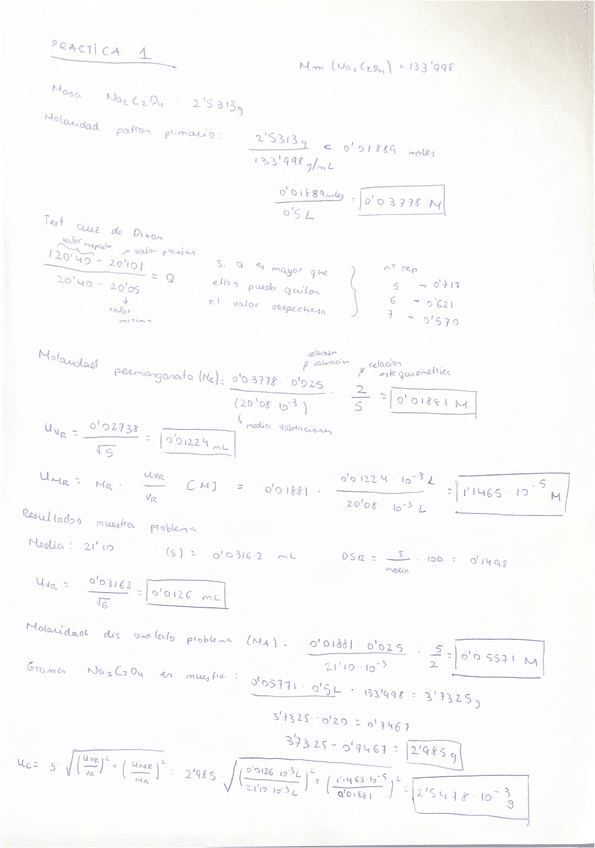 PRACTICA 1
Mm (Na₂C₂O₄) = 133'998
Masa Na₂C₂O₄ : 2'5313g
Molaridad patron primario : 2'5313g / 133'998 g/mL = 0'01889 moles
0'01889 moles / 0'5 L = 0'03778 M
Test Cruz de Dixon
valor sospe → valor proximo
|20'40 - 20'10| / 20'40 - 20'05 = Q
↓ valor minimo
Si Q es mayor que
ellos puedo quitar
el valor sospechoso
nº rep
5 → 0'717
6 → 0'621
7 → 0'570
volumen valoracion
relacion estequiometrica
Molaridad permanganato (MR) = 0'03778 · 0'025 / (20'08 · 10⁻³) · 2/5 = 0'01881 M
↳ media valoraciones
UVR = 0'02738 / √5 = 0'01224 mL
UMR = MR · UVR/VR [M] = 0'01881 · 0'01224 · 10⁻³ L / 20'08 · 10⁻³ L = 1'1465 · 10⁻⁵ M
Resultados muestra problema
Media : 21'10 (s) = 0'03162 mL DSR = s/media · 100 = 0'1498
UVR = 0'03162 / √6 = 0'0126 mL
Molaridad dis oxalato problema (MA) . 0'01881 · 0'025 / 21'10 · 10⁻³ · 5/2 = 0'05571 M
Gramos Na₂C₂O₄ en muestra : 0'05771 · 0'5L · 133'998 = 3'7325g
3'7325 · 0'20 = 0'7467
3'7325 - 0'7467 = 2'985 g
UC = s · √(UVR/VR)² + (UMR/MR)² = 2'985 · √(0'0126 · 10⁻³ L / 21'10 · 10⁻³ L)² + (1'1465 · 10⁻⁵ / 0'01881)² = 2'5478 · 10⁻³ g